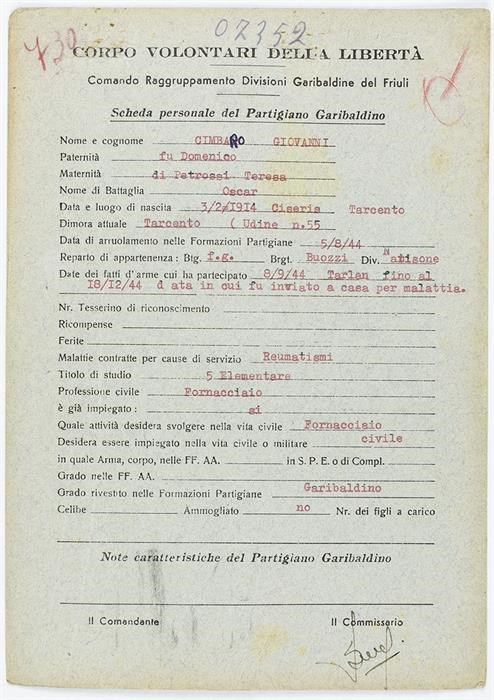 02352
730
CORPO VOLONTARI DELLA LIBERTÀ
Comando Raggruppamento Divisioni Garibaldine del Friuli
Scheda personale del Partigiano Garibaldino
Nome e cognome CIMBARO GIOVANNI
Paternità fu Domenico
Maternità di Petrossi Teresa
Nome di Battaglia Oscar
Data e luogo di nascita 3/2/1914 Ciseris Tarcento
Dimora attuale Tarcento ( Udine n.55
Data di arruolamento nelle Formazioni Partigiane 5/8/44
Reparto di appartenenza : Btg. f.g. Brgt. Buozzi Div. Natisone
Date dei fatti d'arme cui ha partecipato 8/9/44 Tarlan fino al
18/12/44 d ata in cui fu inviato a casa per malattia.
Nr. Tesserino di riconoscimento
Ricompense
Ferite
Malattie contratte per cause di servizio Reumatismi
Titolo di studio 5 Elementare
Professione civile Fornacciaio
è già impiegato : si
Quale attività desidera svolgere nella vita civile Fornacciaio
Desidera essere impiegato nella vita civile o militare civile
in quale Arma, corpo, nelle FF. AA. in S. P. E. o di Compl.
Grado nelle FF. AA.
Grado rivestito nelle Formazioni Partigiane Garibaldino
Celibe Ammogliato no Nr. dei figli a carico
Note caratteristiche del Partigiano Garibaldino
Il Comandante Il Commissario